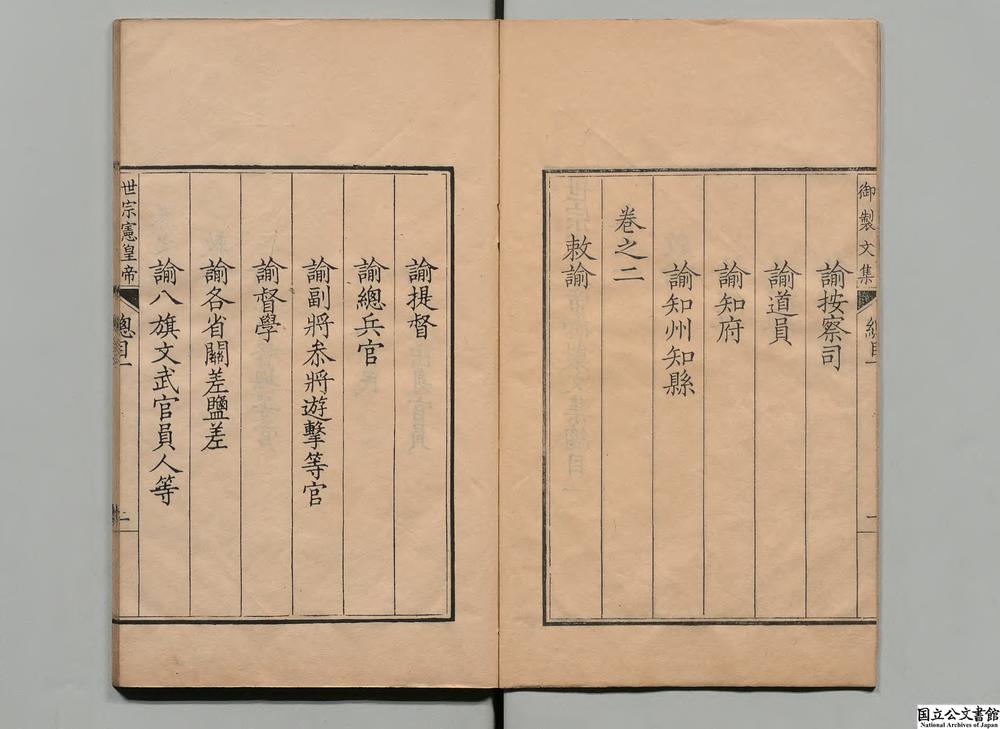 御製文集
總目一
一
諭按察司
諭道員
諭知府
諭知州知縣
卷之二
敕諭
諭提督
諭總兵官
諭副將叅將遊擊等官
諭督學
諭各省關差鹽差
諭八旗文武官員人等
世宗憲皇帝
總目一
二
国立公文書館
National Archives of Japan